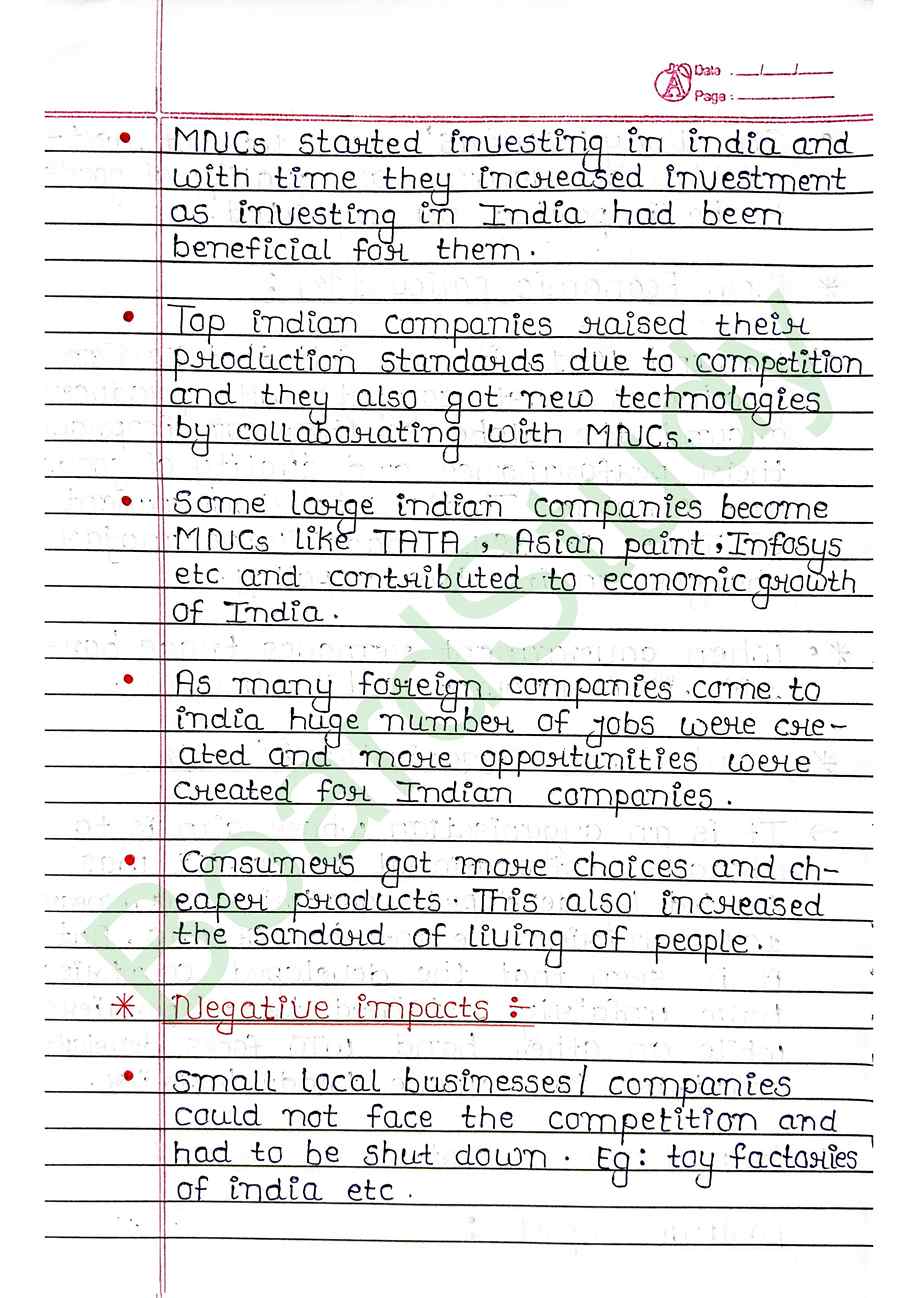 Date : __/__/__
Page :
• MNCs started investing in india and
with time they increased investment
as investing in India had been
beneficial for them.
• Top indian companies raised their
production standards due to competition
and they also got new technologies
by collaborating with MNCs.
• Some large indian companies become
MNCs like TATA , Asian paint , Infosys
etc and contributed to economic growth
of India.
• As many foreign companies come to
india huge number of jobs were cre-
ated and more opportunities were
created for Indian companies.
• Consumers got more choices and ch-
eaper products. This also increased
the sandard of living of people.
* Negative impacts :-
• small local businesses/ companies
could not face the competition and
had to be shut down. Eg: toy factories
of india etc.
BoardStudy